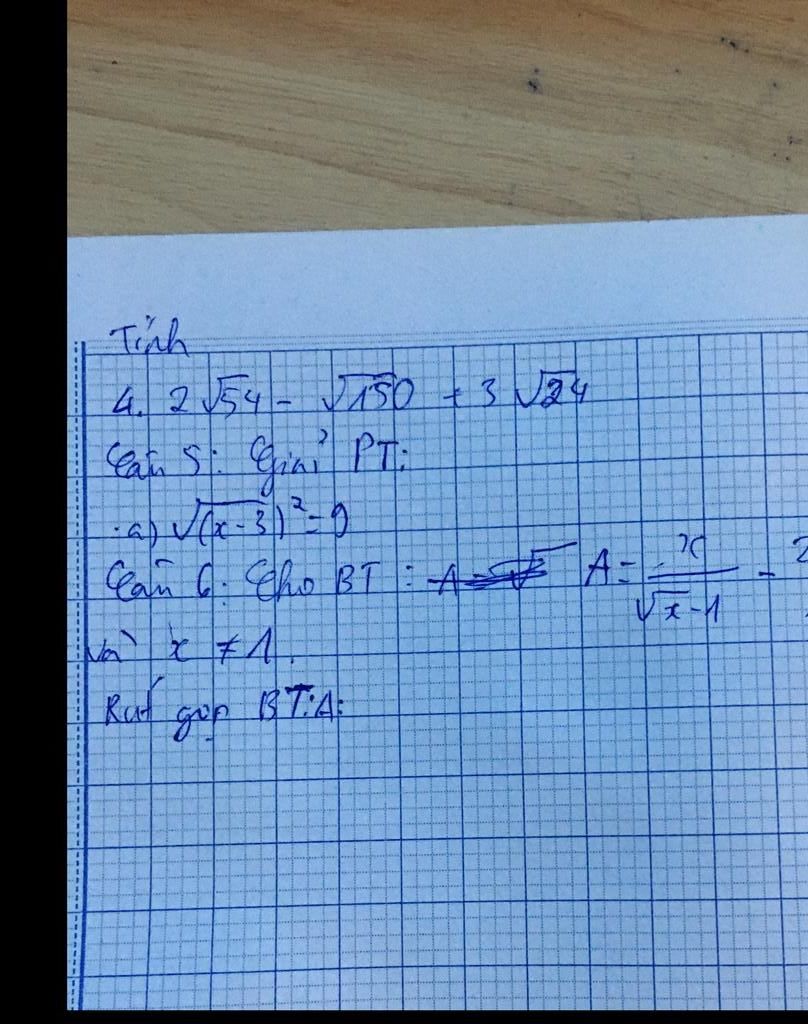 Tính
4. 2√54 - √150 + 3√24
Câu 5: Giải PT:
a) √(x-3)² = 9
Câu 6: Cho BT: A = x/(√x-1) - 2
và x ≠ 1.
Rút gọn BT:A: